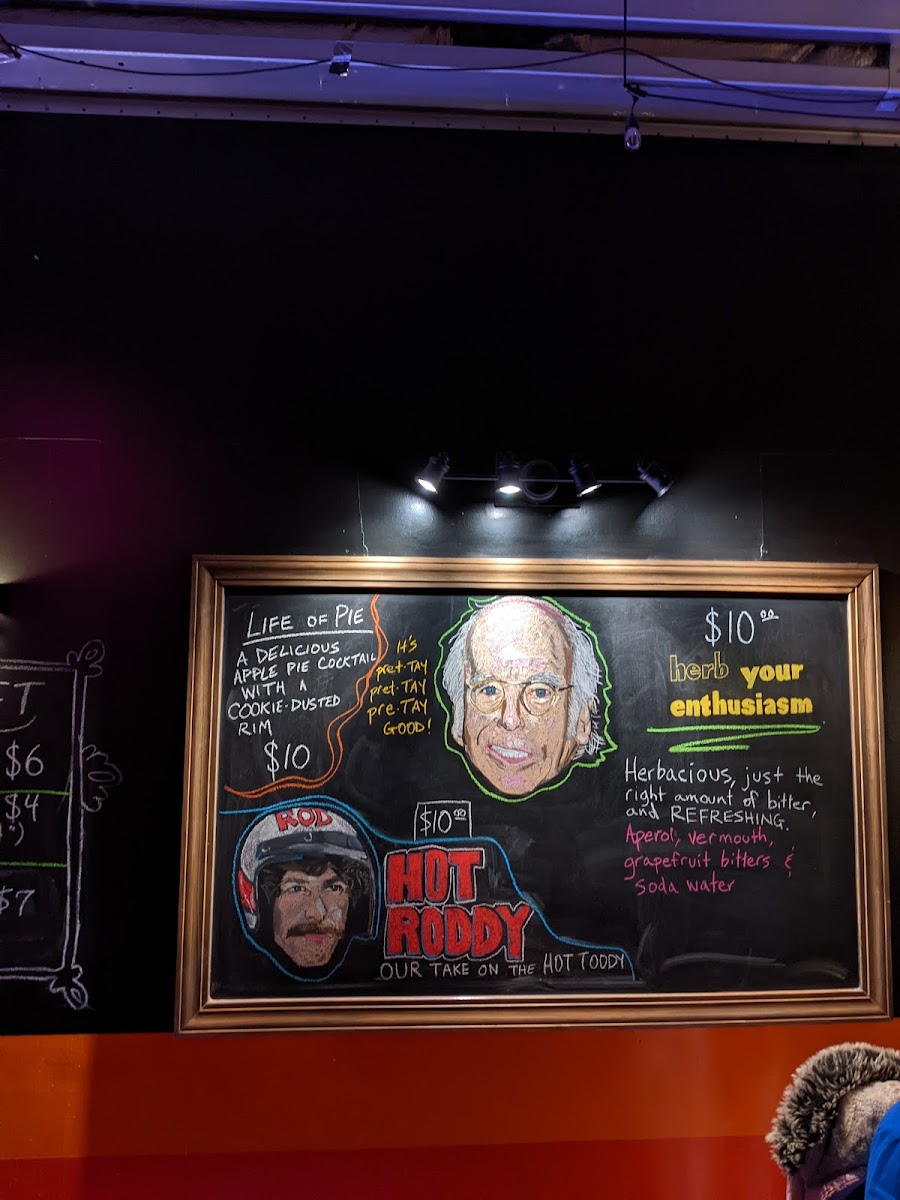 LIFE OF PIE
A DELICIOUS
APPLE PIE COCKTAIL
WITH A
COOKIE-DUSTED
RIM
$10
It's
pret-TAY
pret-TAY
pre-TAY
GOOD!
$10 00
herb your
enthusiasm
Herbacious, just the
right amount of bitter,
and REFRESHING.
Aperol, vermouth,
grapefruit bitters &
soda water
ROD
$10 00
HOT
RODDY
OUR TAKE ON THE HOT TODDY
$6
$4
$7